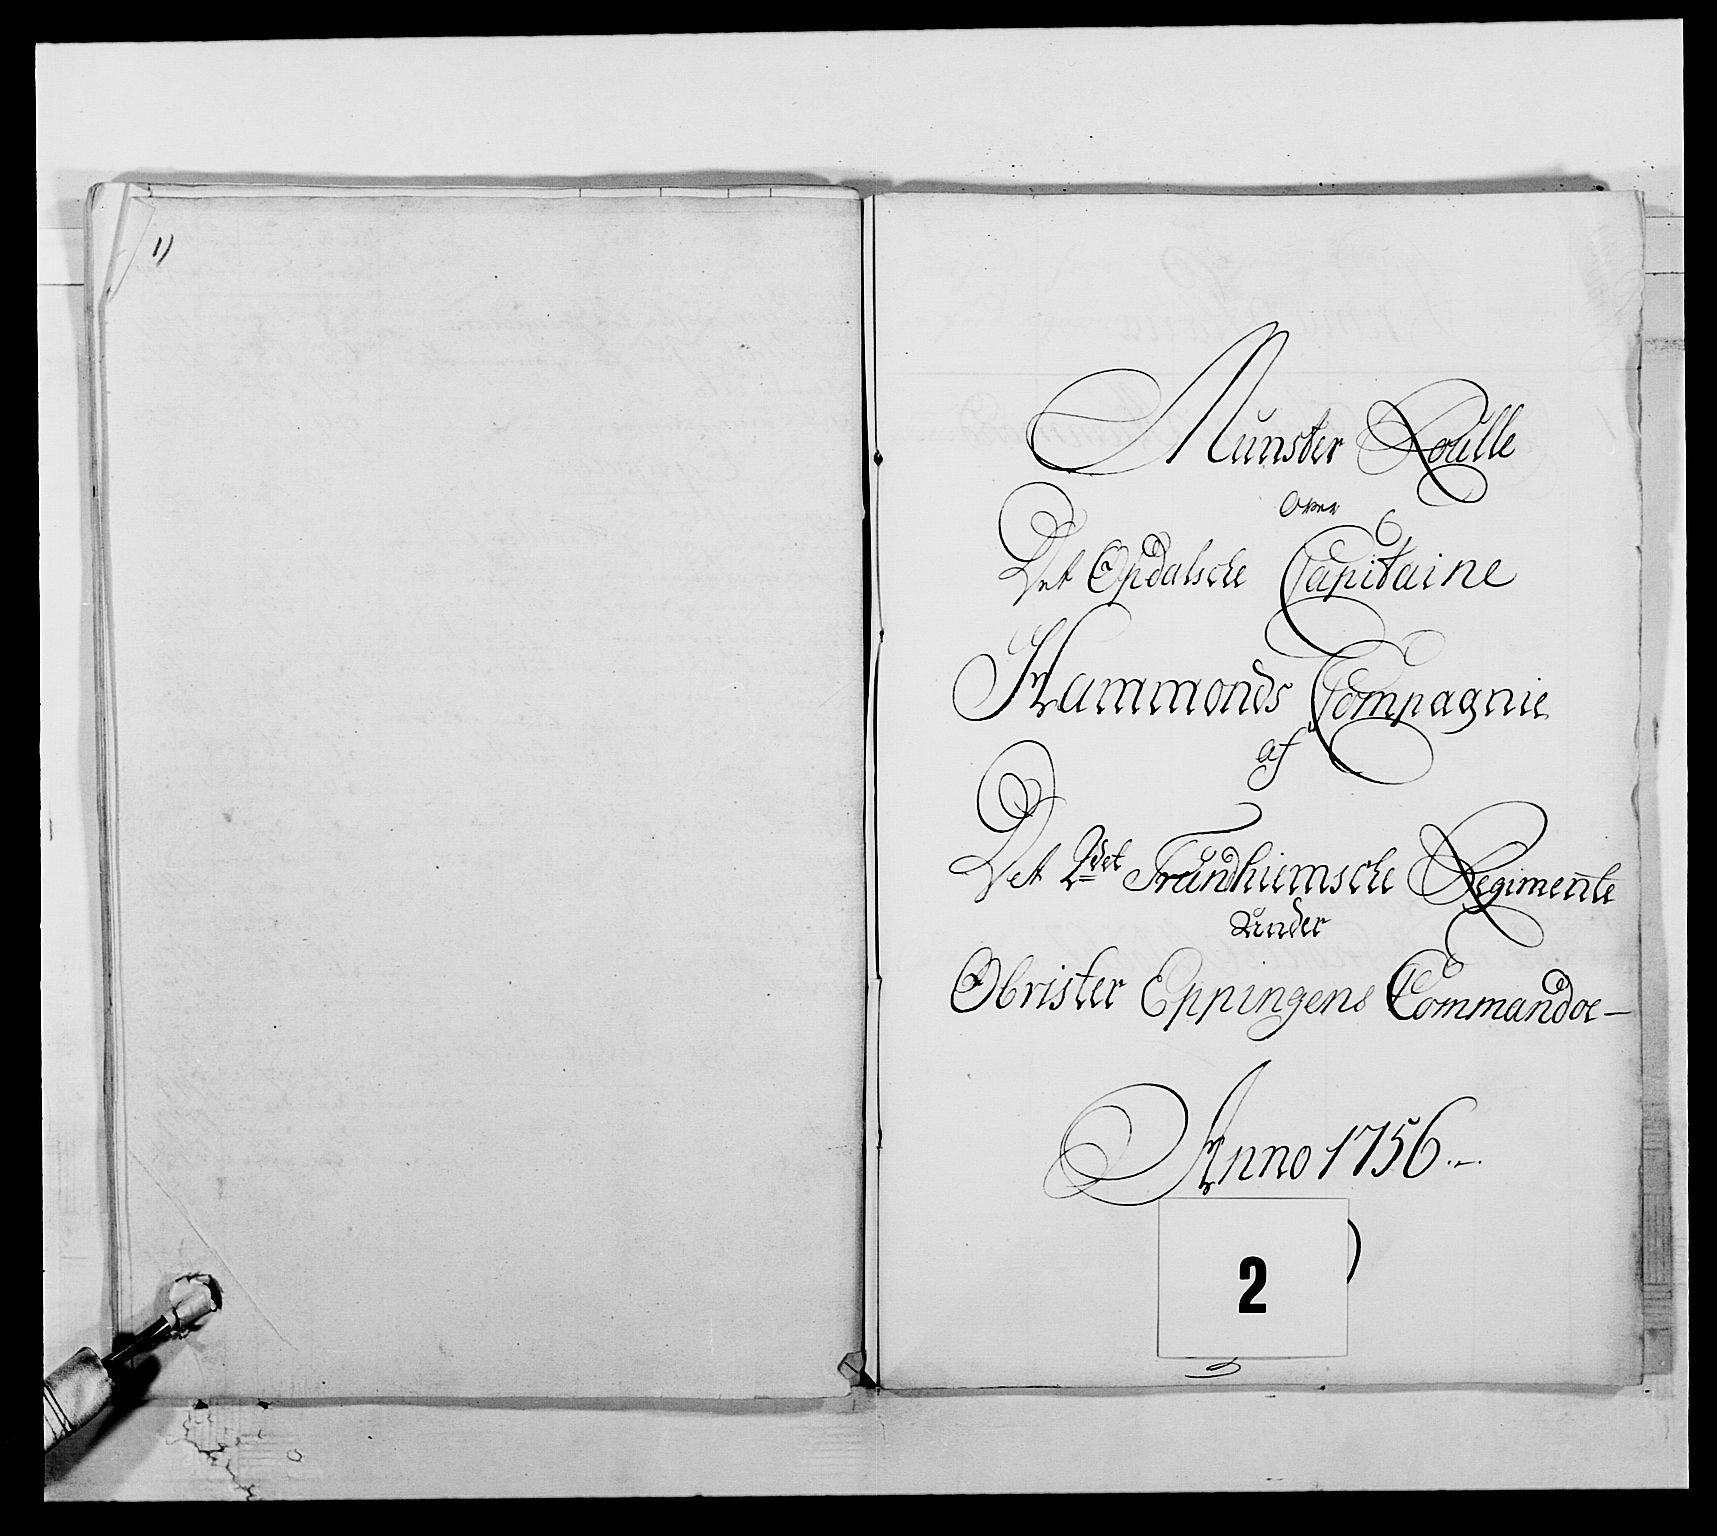 1)
Munster Roulle
Over
Det Opdalsche Capitaine
Hammonds Compagnie
af
Det 2det Trundhiemsche Regimente
Under
Obrister Eppingens Commandoe –
Anno 1756.–.
2